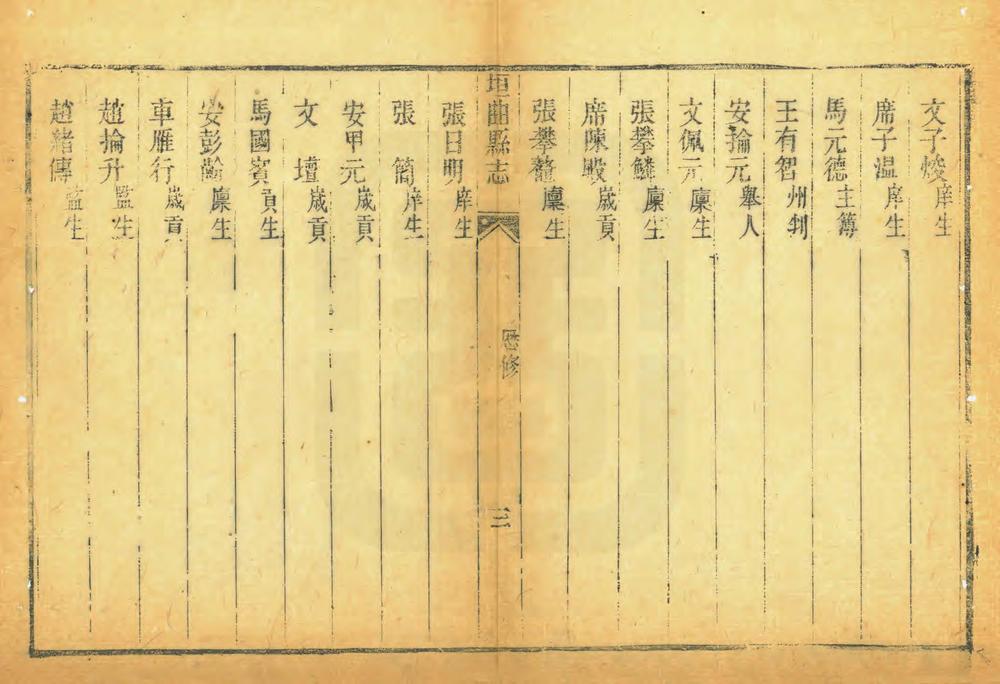 文子焌庠生
席子温庠生
馬元德主簿
王有智州判
安掄元舉人
文佩元廩生
張攀鱗廩生
席陳殿歲貢
張攀鼇廩生
垣曲縣志
歷修
三
張日明庠生
張簡庠生
安甲元歲貢
文壇歲貢
馬國賓貢生
安彭齡廩生
車雁行歲貢
趙掄升監生
趙緒傳監生